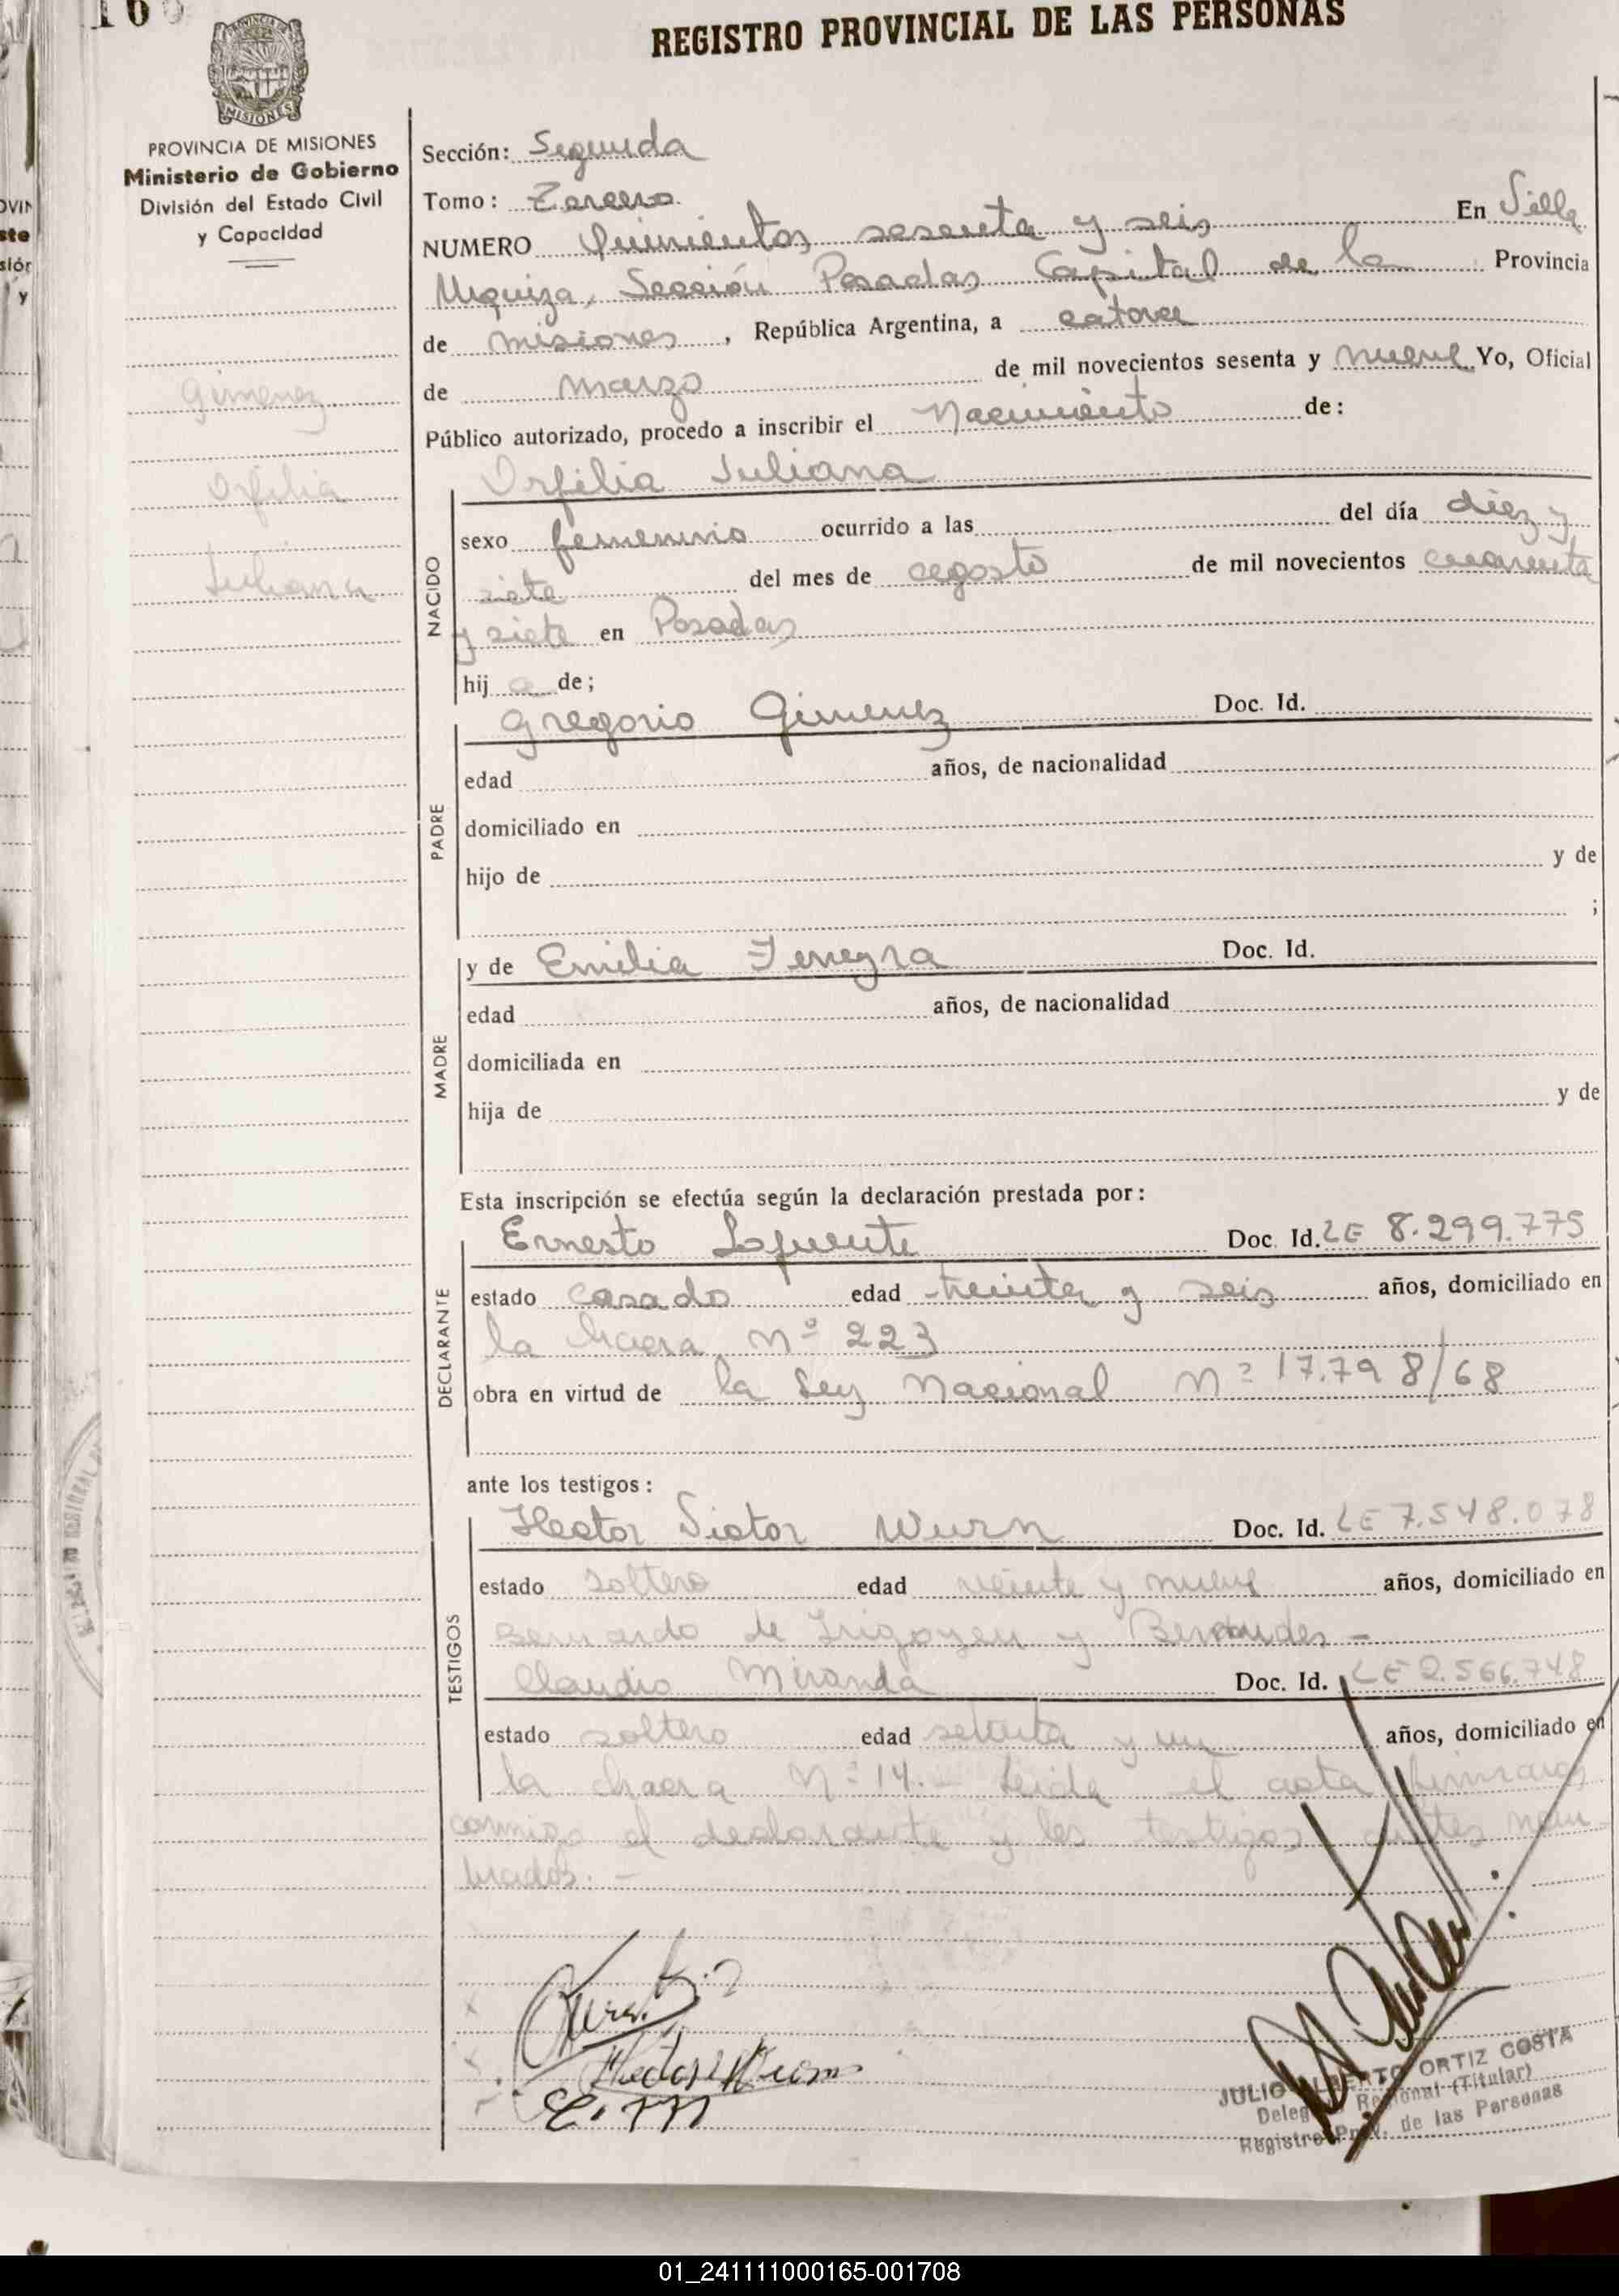 REGISTRO PROVINCIAL DE LAS PERSONAS
MISIONES
PROVINCIA DE MISIONES
Ministerio de Gobierno
División del Estado Civil
y Capacidad
Gimenez
Orfilia
Juliana
Sección: Segunda
Tomo: Tercero
NUMERO Quinientos sesenta y seis En Villa
Urquiza, Sección Posadas Capital de la Provincia
de Misiones, República Argentina, a catorce
de marzo de mil novecientos sesenta y nueve Yo, Oficial
Público autorizado, procedo a inscribir el Nacimiento de:
NACIDO
Orfilia Juliana
sexo femenino ocurrido a las del día diez y
siete del mes de agosto de mil novecientos cuarenta
y siete en Posadas
hij a de;
PADRE
Gregorio Gimenez Doc. Id.
edad años, de nacionalidad
domiciliado en
hijo de y de
;
MADRE
y de Emilia Doc. Id.
edad años, de nacionalidad
domiciliada en
hija de y de
Esta inscripción se efectúa según la declaración prestada por:
DECLARANTE
Ernesto Lafuente Doc. Id. LE 8.299.775
estado casado edad treinta y seis años, domiciliado en
la chacra Nº 223
obra en virtud de la Ley Nacional Nº 17.798/68
ante los testigos:
TESTIGOS
Hector Victor Wurn Doc. Id. LE 7.548.078
estado soltero edad veinte y nueve años, domiciliado en
Bernardo de Irigoyen y Bermudes -
Claudio Miranda Doc. Id. LE 2.566.748
estado soltero edad setenta y un años, domiciliado en
la chacra Nº 14.- Leida el acta firmaron
conmigo el declarante y los testigos antes nom
brados. -
JULIO ALBERTO ORTIZ COSTA
Delegado Regional (Titular)
Registro Prov. de las Personas
01_241111000165-001708